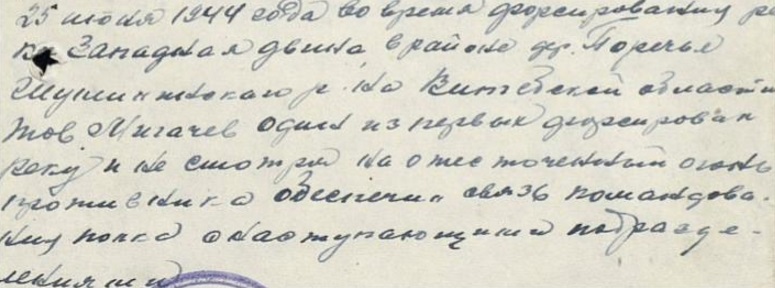 25 июня 1944 года во время форсирования ре
ки Западная двина в районе др. Поречья
Шумилинского р-на Витебской области
тов Мигачев один из первых форсировал
реку и не смотря на ожесточенный огонь
противника обеспечил связь командова-
ния полка с наступающими подразде-
лениями